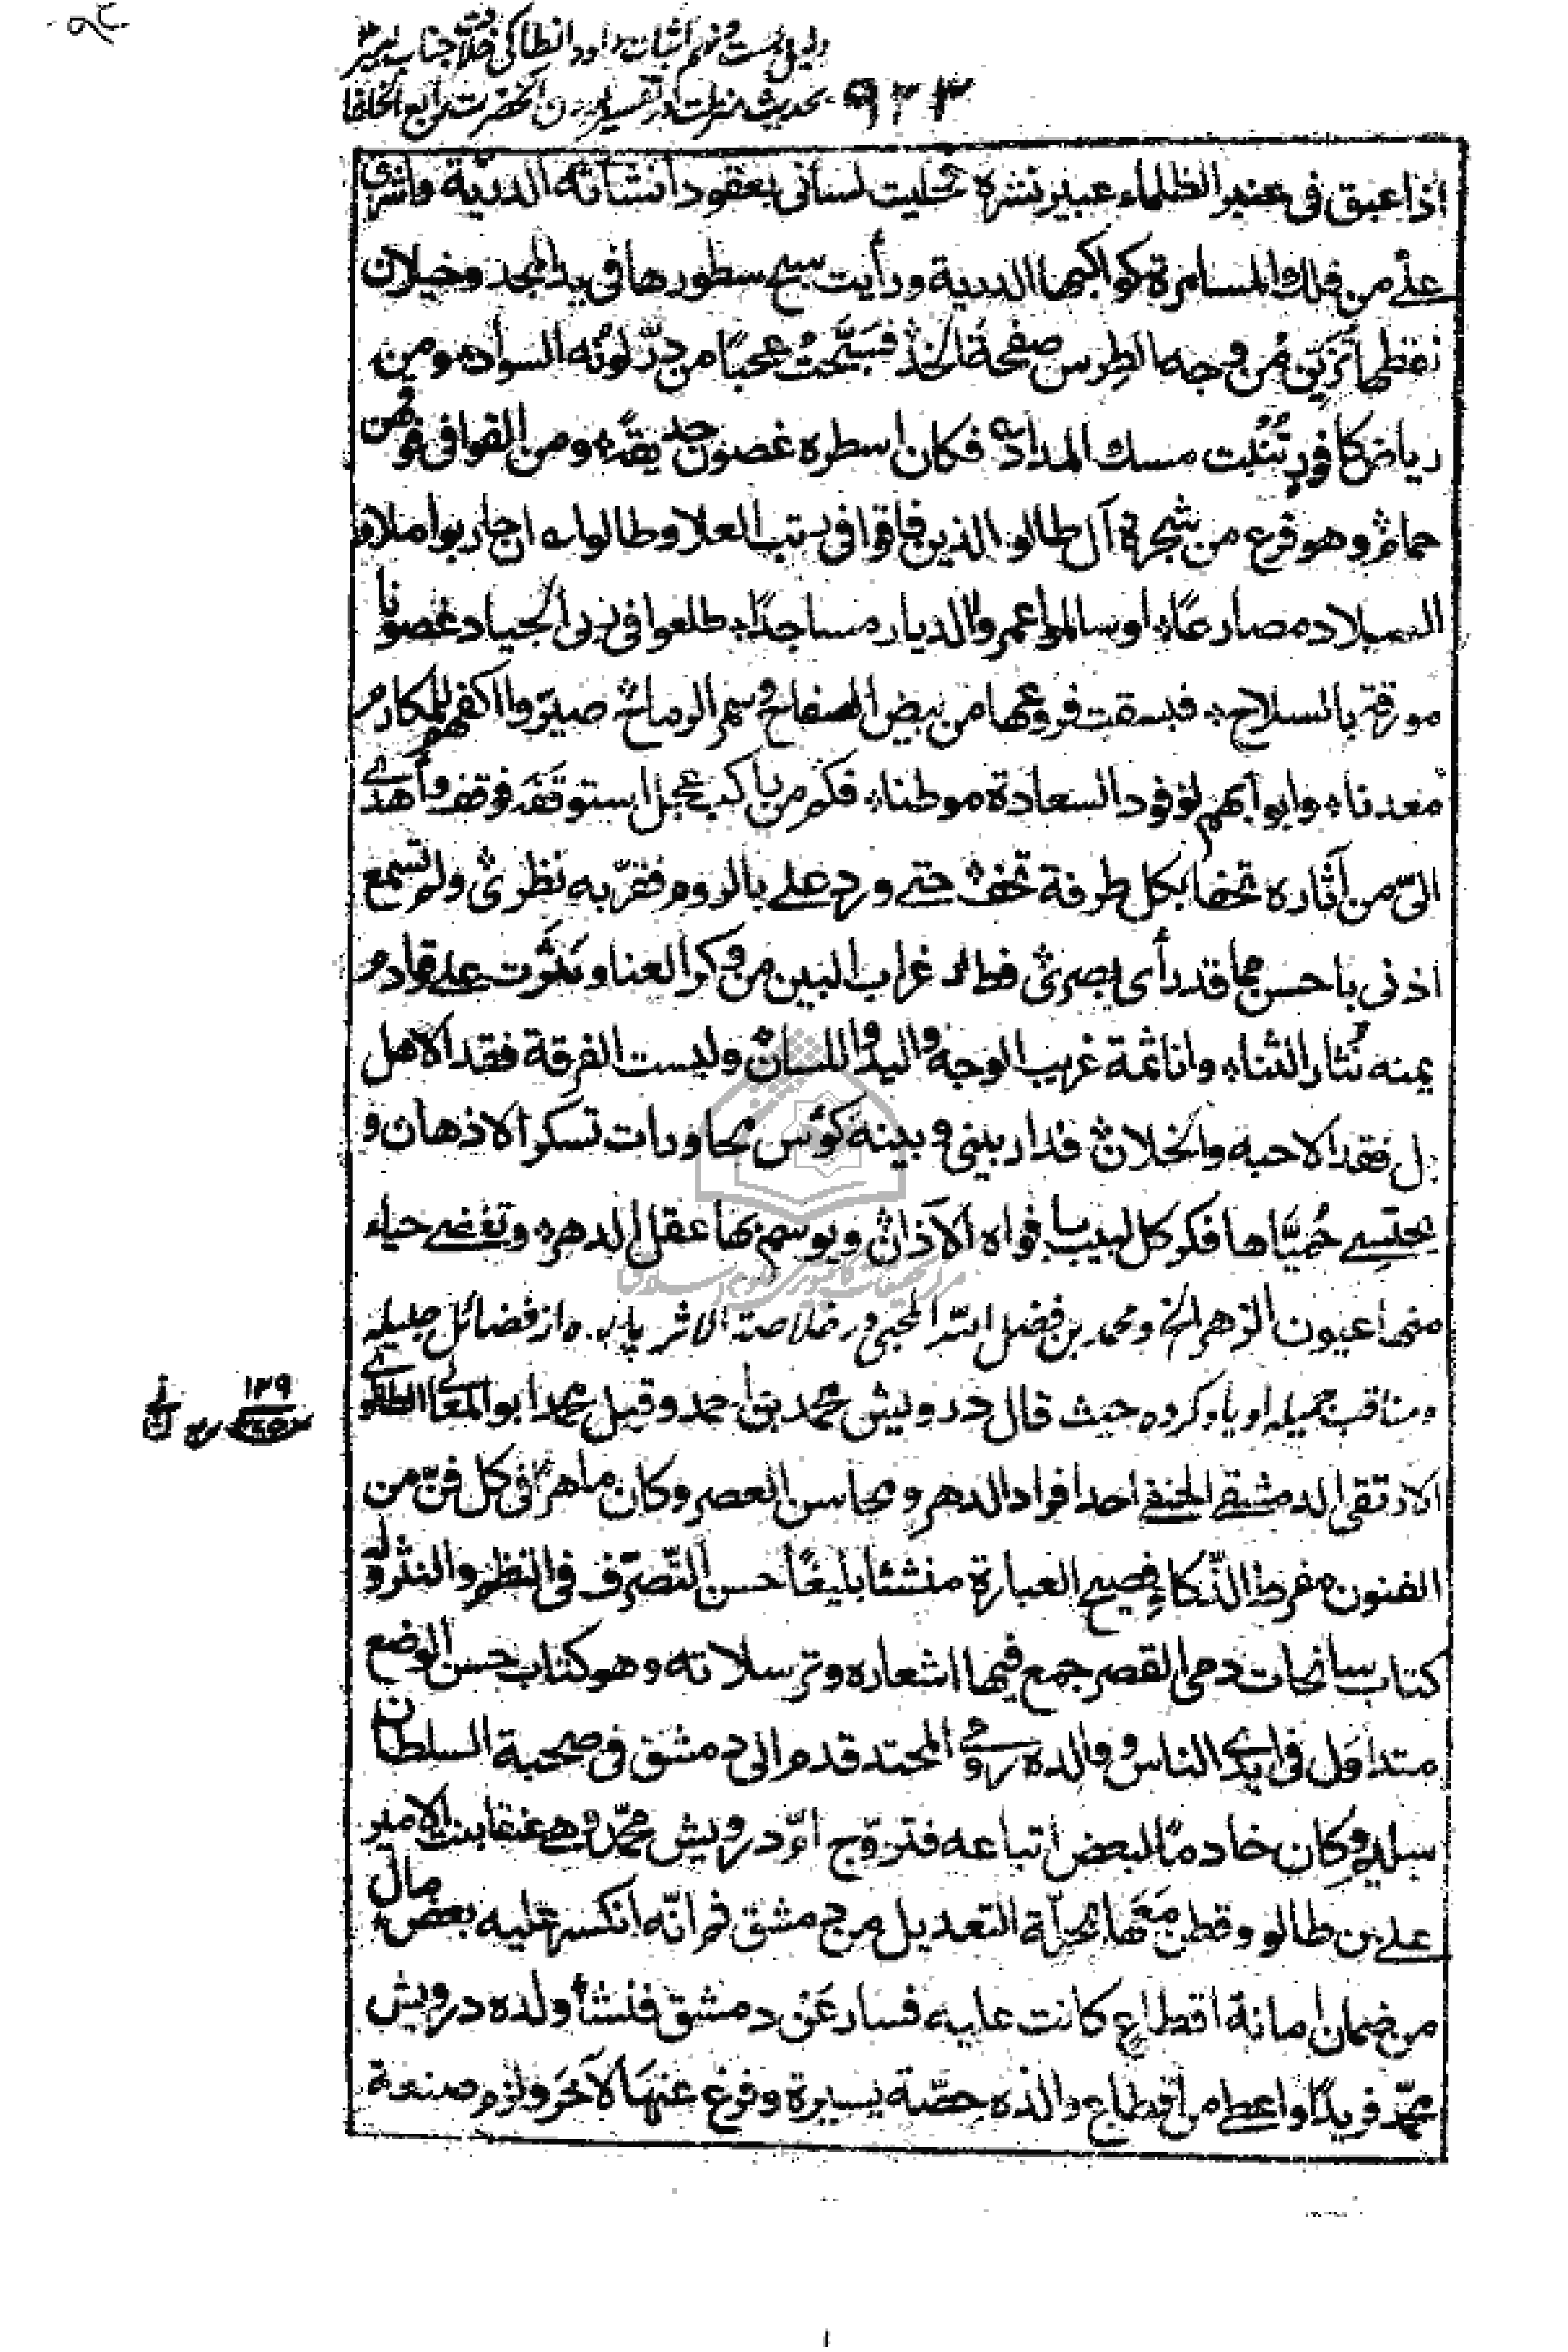 دلیل بست و نهم اثبات داود انطاکی خلافت جناب امیر
۹۲۳ بحدیث منزلت
اذا عبق فى عنبر الظلماء عبير نشره حليت لسانى بعقود انشائه الدرية واشرق
على من فلك المسامرة كواكبها الدرية ورأيت سبح سطورها فى يد المجد وخيلان
نقطها تزين من وجه الطرس صفحة الخد فسبّحت عجبا من درّ لونه السواد ومن
رياض كافور تنبت مسك المداد فكان اسطره غصون حديقة ومن القوافى فوقهن
حمائم وهو فرع من شجرة آل طالو الذين فاقوا فى رتب العلا وطالوا ان حاربوا ملاؤ
البلاد مصارعًا او سالموا عمروا الديار مساجدًا طلعوا فى ربى الجياد غصونا
مورقة بالسلاح فبسقت فروعها من بيض الصفاح وسمر الرماح صيّروا اكفهم للمكارم
معدنا وابوابهم لوفود السعادة موطنا فكم من راكب عجل استوقفه فوقف وأهدى
الىّ من آثاره تحفا بكل طرفة تحف حتى ورد على بالروم فقرّ به نظرى ولم تسمع
اذنى باحسن مما قد رأى بصرى فطار غراب البين من وكر العنا ونثرت على قادم
يمنه نثار الثناء وانا ثمة غريب الوجه واليد واللسان وليست الفرقة فقد الاهل
بل فقد الاحبه والخلان فدار بينى وبينه كؤس محاورات تسكر الاذهان و
يحتسى حُميّاها فكر كل لبيب بافواه الآذان ويوسم بها عقل الدهر وتغضى حياء
منها عيون الزهر الخ ومحمد بن فضل الله المحبى در خلاصة الاثر پاره از فضائل جليله
و مناقب جميله او ياد كرده حيث قال درويش محمد بن احمد وقيل محمد ابو المعالى الطالوى
الارتقى الدمشقى الحنفى احد افراد الدهر ومحاسن العصر وكان ماهرا فى كل فنّ من
الفنون مفرط الذّكاء فصيح العبارة منشئا بليغًا حسن التّصرّف فى النظم والنثر وله
كتاب سانحات دمى القصر جمع فيها اشعاره وترسلاته وهو كتاب حسن الوضع
متداول فى ايدى الناس ووالده رومى المحتد قدم الى دمشق فى صحبة السلطان
سليم وكان خادمًا لبعض اتباعه فتزوّج امّ درويش محمّد وهى عنقا بنت الامير
على بن طالو وقطن معها بمحلّة التعديل من دمشق ثم انّه انكسر عليه بعض مال
من ضمان امانة اقطاع كانت عليه فسار عن دمشق فنشأ ولده درويش
محمّد فريدًا واعطى من اقطاع والده حصّة يسيرة وفرغ عنها لآخر ولزم صنعة
۱۴۹
مركز تحقيقات كامپيوترى علوم اسلامى